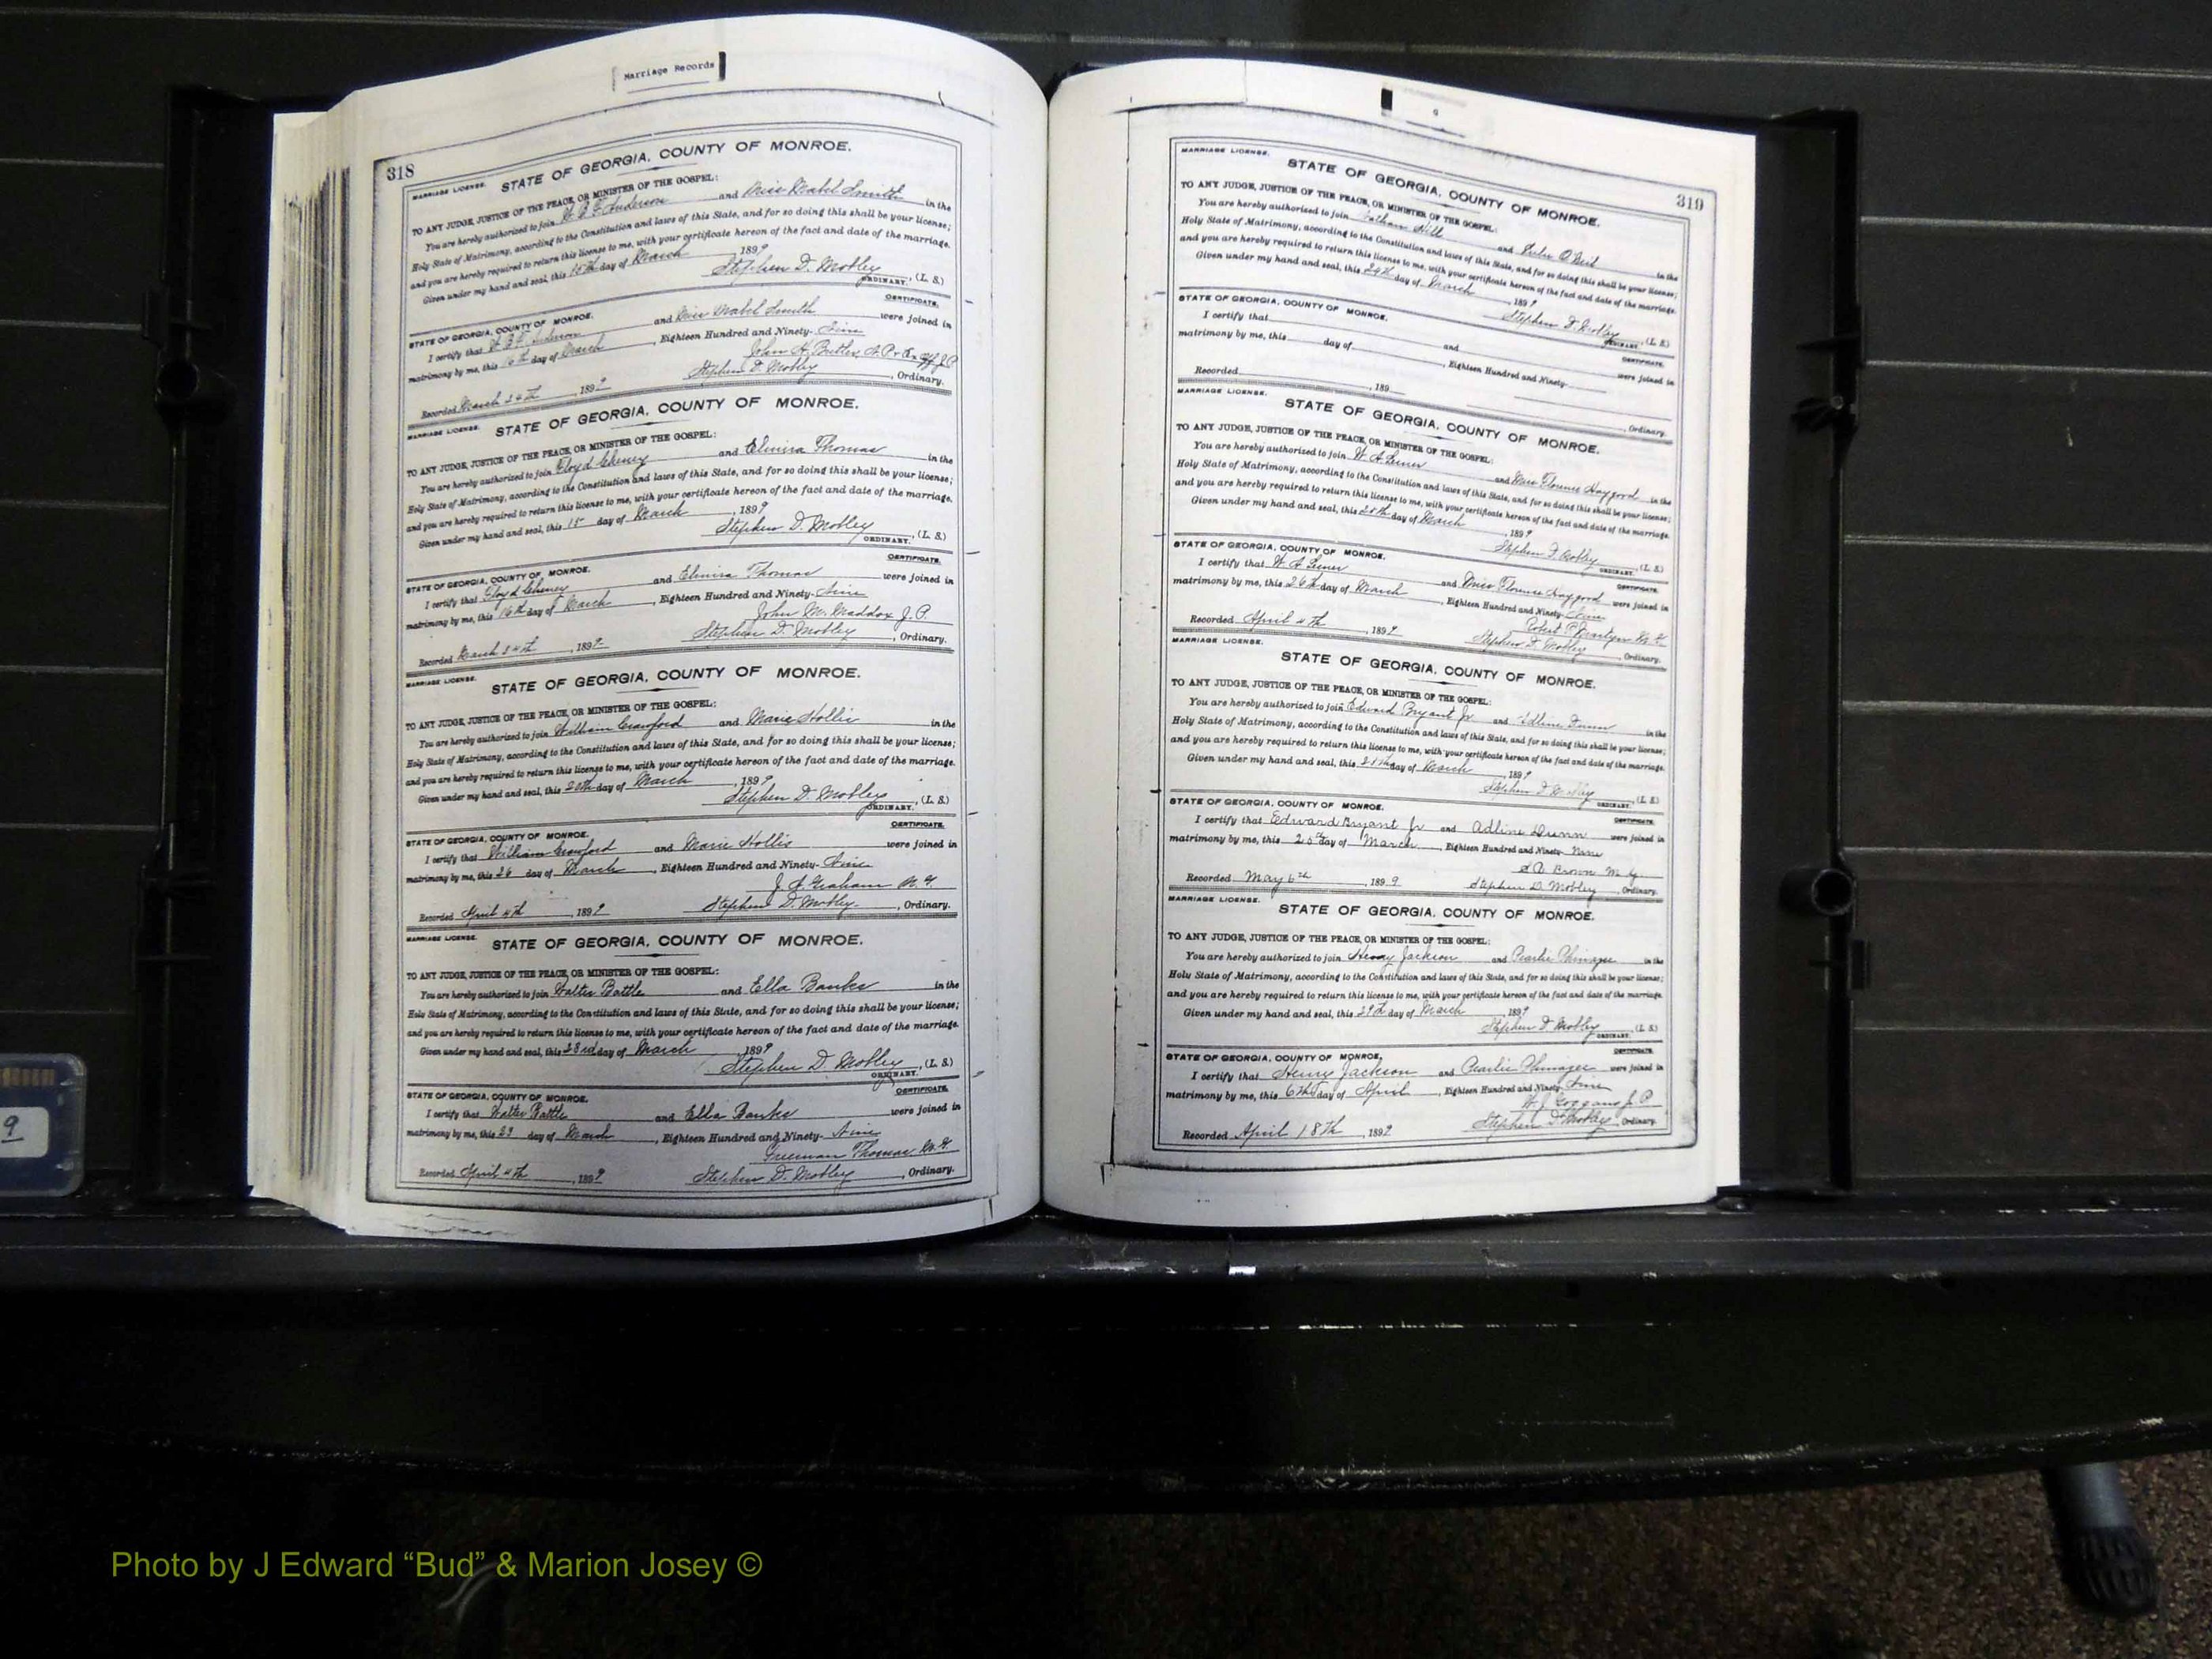 Marriage Records
318
MARRIAGE LICENSE. STATE OF GEORGIA, COUNTY OF MONROE.
TO ANY JUDGE, JUSTICE OF THE PEACE, OR MINISTER OF THE GOSPEL:
You are hereby authorized to join Anderson and Miss Mabel Smith in the
Holy State of Matrimony, according to the Constitution and laws of this State, and for so doing this shall be your license;
and you are hereby required to return this license to me, with your certificate hereon of the fact and date of the marriage.
Given under my hand and seal, this 15th day of March 1899
Stephen D. Mobley ORDINARY, (L. S.)
CERTIFICATE.
STATE OF GEORGIA, COUNTY OF MONROE.
I certify that Anderson and Miss Mabel Smith were joined in
matrimony by me, this 16th day of March, Eighteen Hundred and Ninety-Nine
John H. Butler, N.P. & Ex off J.P.
Recorded March 24th, 1899 Stephen D. Mobley, Ordinary.
MARRIAGE LICENSE. STATE OF GEORGIA, COUNTY OF MONROE.
TO ANY JUDGE, JUSTICE OF THE PEACE, OR MINISTER OF THE GOSPEL:
You are hereby authorized to join Floyd Cheney and Elmira Thomas in the
Holy State of Matrimony, according to the Constitution and laws of this State, and for so doing this shall be your license;
and you are hereby required to return this license to me, with your certificate hereon of the fact and date of the marriage.
Given under my hand and seal, this 15 day of March, 1899
Stephen D. Mobley ORDINARY, (L. S.)
CERTIFICATE.
STATE OF GEORGIA, COUNTY OF MONROE.
I certify that Floyd Cheney and Elmira Thomas were joined in
matrimony by me, this 16th day of March, Eighteen Hundred and Ninety-Nine
John M. Maddox J.P.
Recorded March 24th, 1899 Stephen D. Mobley, Ordinary.
MARRIAGE LICENSE. STATE OF GEORGIA, COUNTY OF MONROE.
TO ANY JUDGE, JUSTICE OF THE PEACE, OR MINISTER OF THE GOSPEL:
You are hereby authorized to join William Crawford and Marie Hollis in the
Holy State of Matrimony, according to the Constitution and laws of this State, and for so doing this shall be your license;
and you are hereby required to return this license to me, with your certificate hereon of the fact and date of the marriage.
Given under my hand and seal, this 20th day of March, 1899
Stephen D. Mobley ORDINARY, (L. S.)
CERTIFICATE.
STATE OF GEORGIA, COUNTY OF MONROE.
I certify that William Crawford and Marie Hollis were joined in
matrimony by me, this 26 day of March, Eighteen Hundred and Ninety-Nine
J. A. Graham M.G.
Recorded April 4th, 1899 Stephen D. Mobley, Ordinary.
MARRIAGE LICENSE. STATE OF GEORGIA, COUNTY OF MONROE.
TO ANY JUDGE, JUSTICE OF THE PEACE, OR MINISTER OF THE GOSPEL:
You are hereby authorized to join Walter Battle and Ella Banks in the
Holy State of Matrimony, according to the Constitution and laws of this State, and for so doing this shall be your license;
and you are hereby required to return this license to me, with your certificate hereon of the fact and date of the marriage.
Given under my hand and seal, this 23rd day of March 1899
Stephen D. Mobley ORDINARY, (L. S.)
CERTIFICATE.
STATE OF GEORGIA, COUNTY OF MONROE.
I certify that Walter Battle and Ella Banks were joined in
matrimony by me, this 23 day of March, Eighteen Hundred and Ninety-Nine
Freeman Thomas M.G.
Recorded April 4th, 1899 Stephen D. Mobley, Ordinary.
319
MARRIAGE LICENSE. STATE OF GEORGIA, COUNTY OF MONROE.
TO ANY JUDGE, JUSTICE OF THE PEACE, OR MINISTER OF THE GOSPEL:
You are hereby authorized to join Nathan Hill and O'Neil in the
Holy State of Matrimony, according to the Constitution and laws of this State, and for so doing this shall be your license;
and you are hereby required to return this license to me, with your certificate hereon of the fact and date of the marriage.
Given under my hand and seal, this 24th day of March, 1899
Stephen D. Mobley ORDINARY, (L. S.)
CERTIFICATE.
STATE OF GEORGIA, COUNTY OF MONROE.
I certify that and were joined in
matrimony by me, this day of , Eighteen Hundred and Ninety-
Recorded , 189 , Ordinary.
MARRIAGE LICENSE. STATE OF GEORGIA, COUNTY OF MONROE.
TO ANY JUDGE, JUSTICE OF THE PEACE, OR MINISTER OF THE GOSPEL:
You are hereby authorized to join W. A. and Miss Florence Haygood in the
Holy State of Matrimony, according to the Constitution and laws of this State, and for so doing this shall be your license;
and you are hereby required to return this license to me, with your certificate hereon of the fact and date of the marriage.
Given under my hand and seal, this 25th day of March, 1899
Stephen D. Mobley ORDINARY, (L. S.)
CERTIFICATE.
STATE OF GEORGIA, COUNTY OF MONROE.
I certify that W. A. and Miss Florence Haygood were joined in
matrimony by me, this 26th day of March, Eighteen Hundred and Ninety-Nine
Robert P. M.G.
Recorded April 4th, 1899 Stephen D. Mobley, Ordinary.
MARRIAGE LICENSE. STATE OF GEORGIA, COUNTY OF MONROE.
TO ANY JUDGE, JUSTICE OF THE PEACE, OR MINISTER OF THE GOSPEL:
You are hereby authorized to join Edward Bryant Jr and Adline Dunn in the
Holy State of Matrimony, according to the Constitution and laws of this State, and for so doing this shall be your license;
and you are hereby required to return this license to me, with your certificate hereon of the fact and date of the marriage.
Given under my hand and seal, this day of March, 1899
Stephen D. Mobley ORDINARY, (L. S.)
CERTIFICATE.
STATE OF GEORGIA, COUNTY OF MONROE.
I certify that Edward Bryant Jr and Adline Dunn were joined in
matrimony by me, this 25th day of March, Eighteen Hundred and Ninety-Nine
Brown M.G.
Recorded May 6th, 1899 Stephen D. Mobley, Ordinary.
MARRIAGE LICENSE. STATE OF GEORGIA, COUNTY OF MONROE.
TO ANY JUDGE, JUSTICE OF THE PEACE, OR MINISTER OF THE GOSPEL:
You are hereby authorized to join Henry Jackson and Pearlie in the
Holy State of Matrimony, according to the Constitution and laws of this State, and for so doing this shall be your license;
and you are hereby required to return this license to me, with your certificate hereon of the fact and date of the marriage.
Given under my hand and seal, this 29th day of March, 1899
Stephen D. Mobley ORDINARY, (L. S.)
CERTIFICATE.
STATE OF GEORGIA, COUNTY OF MONROE.
I certify that Henry Jackson and Pearlie were joined in
matrimony by me, this 6th day of April, Eighteen Hundred and Ninety-Nine
W. J. J.P.
Recorded April 18th, 1899 Stephen D. Mobley, Ordinary.
9
Photo by J Edward “Bud” & Marion Josey ©